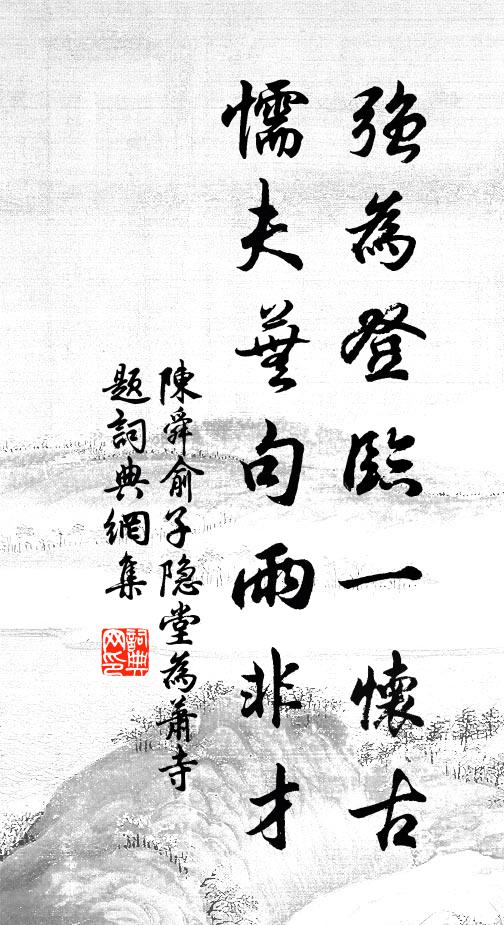 強為登臨一懷古
懦夫蕪句兩非才
陳舜俞子隐堂為蕭寺
題詞典網集
詞典网印